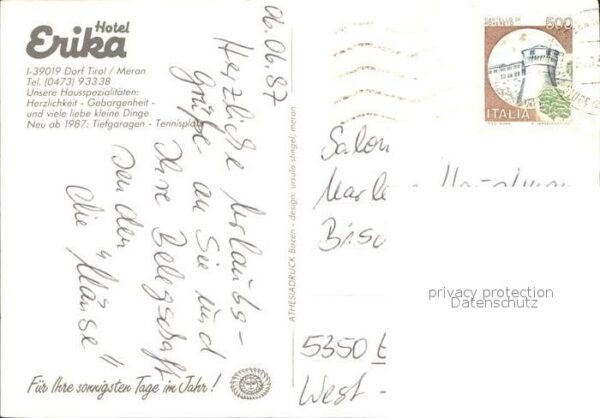 Hotel
Erika
I-39019 Dorf Tirol / Meran
Tel. (0473) 93338
Unsere Hausspezialitäten:
Herzlichkeit - Geborgenheit -
und viele liebe kleine Dinge
Neu ab 1987: Tiefgaragen - Tennisplatz
06.06.87
Herzliche Urlaubs-
grüße an Sie und
Ihre Belegschaft
von den
die "Mäuse"
Für Ihre sonnigsten Tage im Jahr!
ATHESIADRUCK Bozen - design: ursula stingel, meran
CASTELLO DI
ROVERETO
500
ITALIA
Salon
5350
West-
privacy protection
Datenschutz